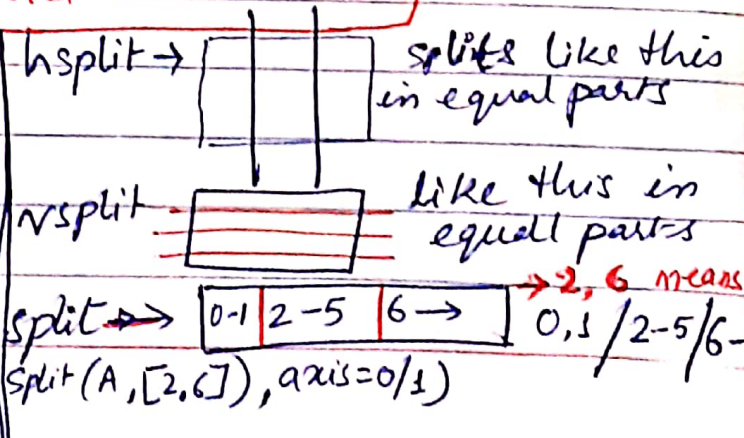 hsplit → splits like this
in equal parts
vsplit like this in
equall parts
split → 0-1 2-5 6→ → 2, 6 means
0,1 / 2-5/6-
split (A, [2,6]), axis=0/1)